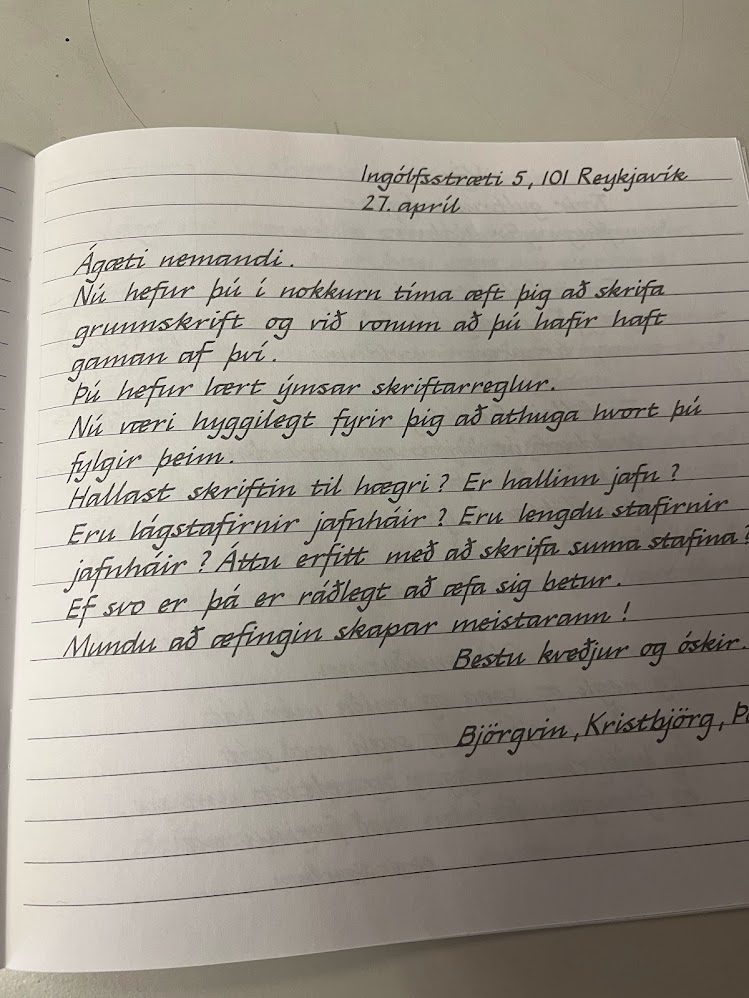 Ingólfsstræti 5, 101 Reykjavík
27. apríl
Ágæti nemandi.
Nú hefur þú í nokkurn tíma æft þig að skrifa
grunnskrift og við vonum að þú hafir haft
gaman af því.
Þú hefur lært ýmsar skriftarreglur.
Nú væri hyggilegt fyrir þig að athuga hvort þú
fylgir þeim.
Hallast skriftin til hægri? Er hallinn jafn?
Eru lágstafirnir jafnháir? Eru lengdu stafirnir
jafnháir? Áttu erfitt með að skrifa suma stafina?
Ef svo er þá er ráðlegt að æfa sig betur.
Mundu að æfingin skapar meistarann!
Bestu kveðjur og óskir.
Björgvin, Kristbjörg,